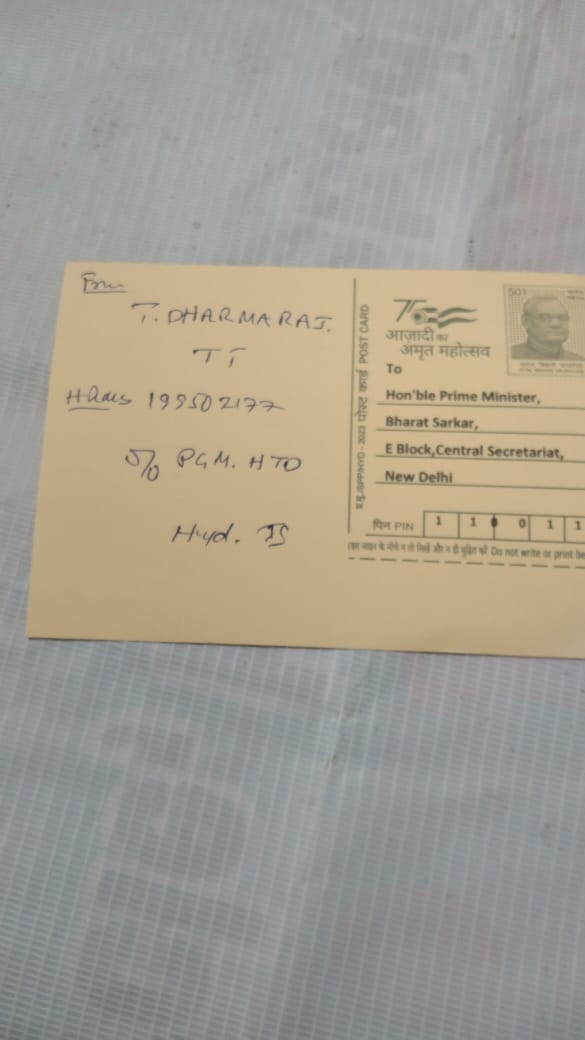 From
T. DHARMARAJ.
TT
HRMS 199502177
O/o PGM. HTD
Hyd. TS
प्र.मु./ISPP/HYD - 2023 पोस्ट कार्ड POST CARD
75
आज़ादी का
अमृत महोत्सव
501
To
Hon'ble Prime Minister,
Bharat Sarkar,
E Block,Central Secretariat,
New Delhi
पिन PIN 1 1 0 0 1 1
(इस लाइन के नीचे न तो लिखें और न ही मुद्रित करें Do not write or print be